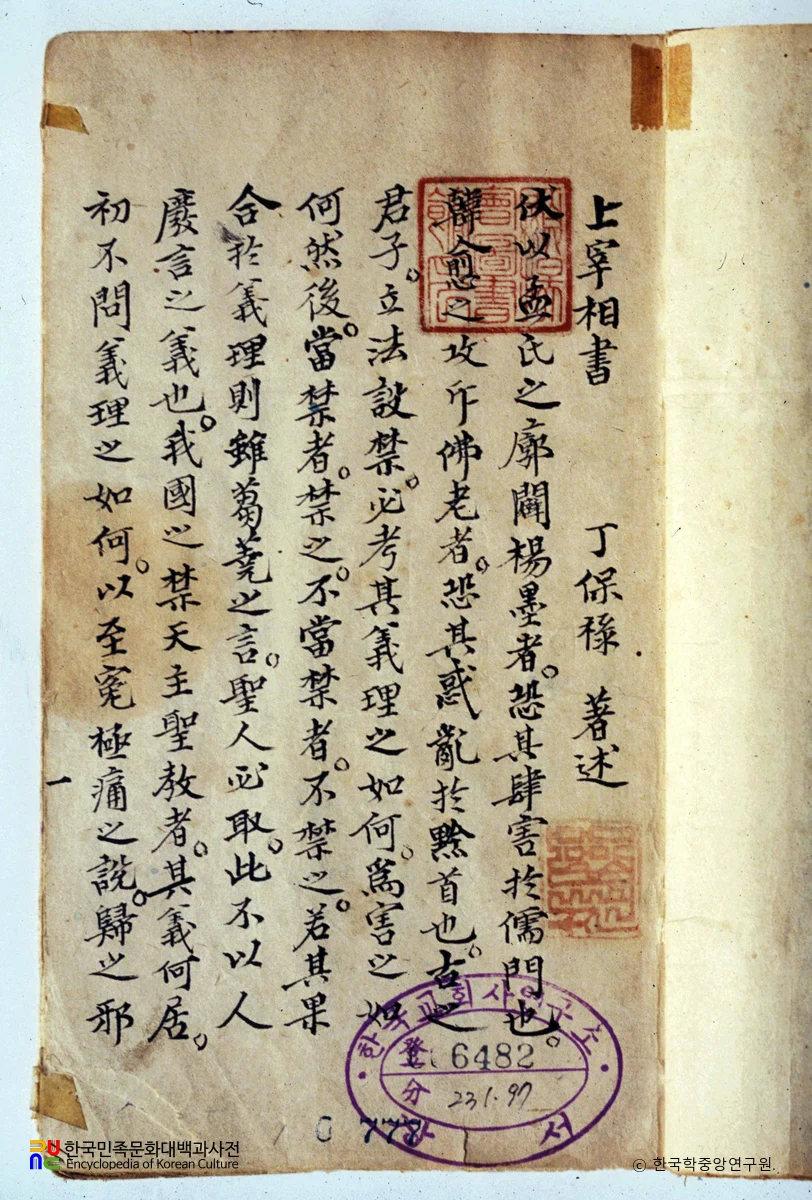 上宰相書 丁保祿 著述
伏以孟氏之廓闢楊墨者。恐其肆害於儒門也。
韓愈之攻斥佛老者。恐其惑亂於黔首也。古之
君子。立法設禁。必考其義理之如何。爲害之如
何然後。當禁者。禁之。不當禁者。不禁之。若其果
合於義理則雖蒭蕘之言。聖人必取。此不以人
廢言之義也。我國之禁天主聖敎者。其義何居。
初不問義理之如何。以至寃極痛之說。歸之邪
一
한국교회사연구소
登 6482
分 231.97
서
0777
한국민족문화대백과사전
Encyclopedia of Korean Culture
© 한국학중앙연구원.